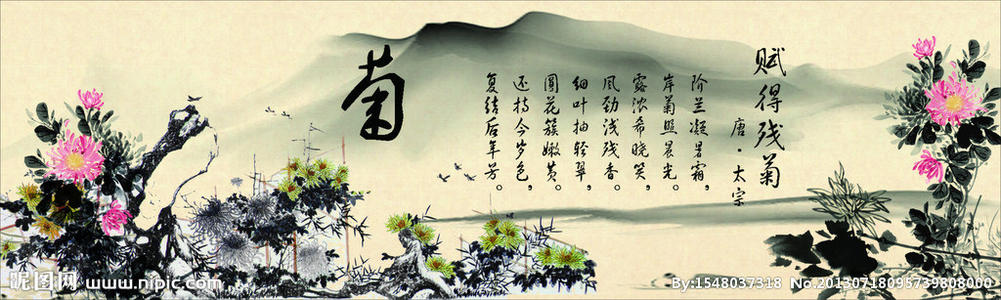 菊
赋得残菊
唐·太宗
阶兰凝暑霜，
岸菊照晨光。
露浓希晓笑，
风劲浅残香。
细叶抽轻翠，
圆花簇嫩黄。
还持今岁色，
复结后年芳。
昵图网 www.nipic.com
By:1548037318 No.20130718095739808000